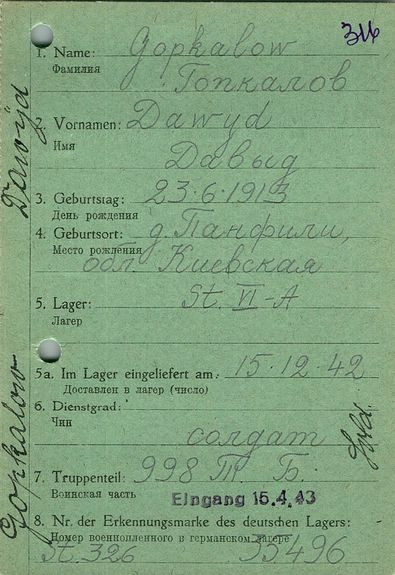 316
1. Name: Gopkalow
Фамилия
Гопкалов
2. Vornamen: Dawyd
Имя
Давыд
3. Geburtstag: 23.6.1913
День рождения
4. Geburtsort: д. Панфили,
Место рождения
обл. Киевская
5. Lager: St. VI-A
Лагер
5a. Im Lager eingeliefert am: 15.12.42
Доставлен в лагер (число)
6. Dienstgrad:
Чин
солдат
7. Truppenteil: 998 Т. Б.
Воинская часть
Eingang 15.4.43
8. Nr. der Erkennungsmarke des deutschen Lagers:
Номер военнопленного в германском лагере
St. 326 55496
Gopkalow Dawyd